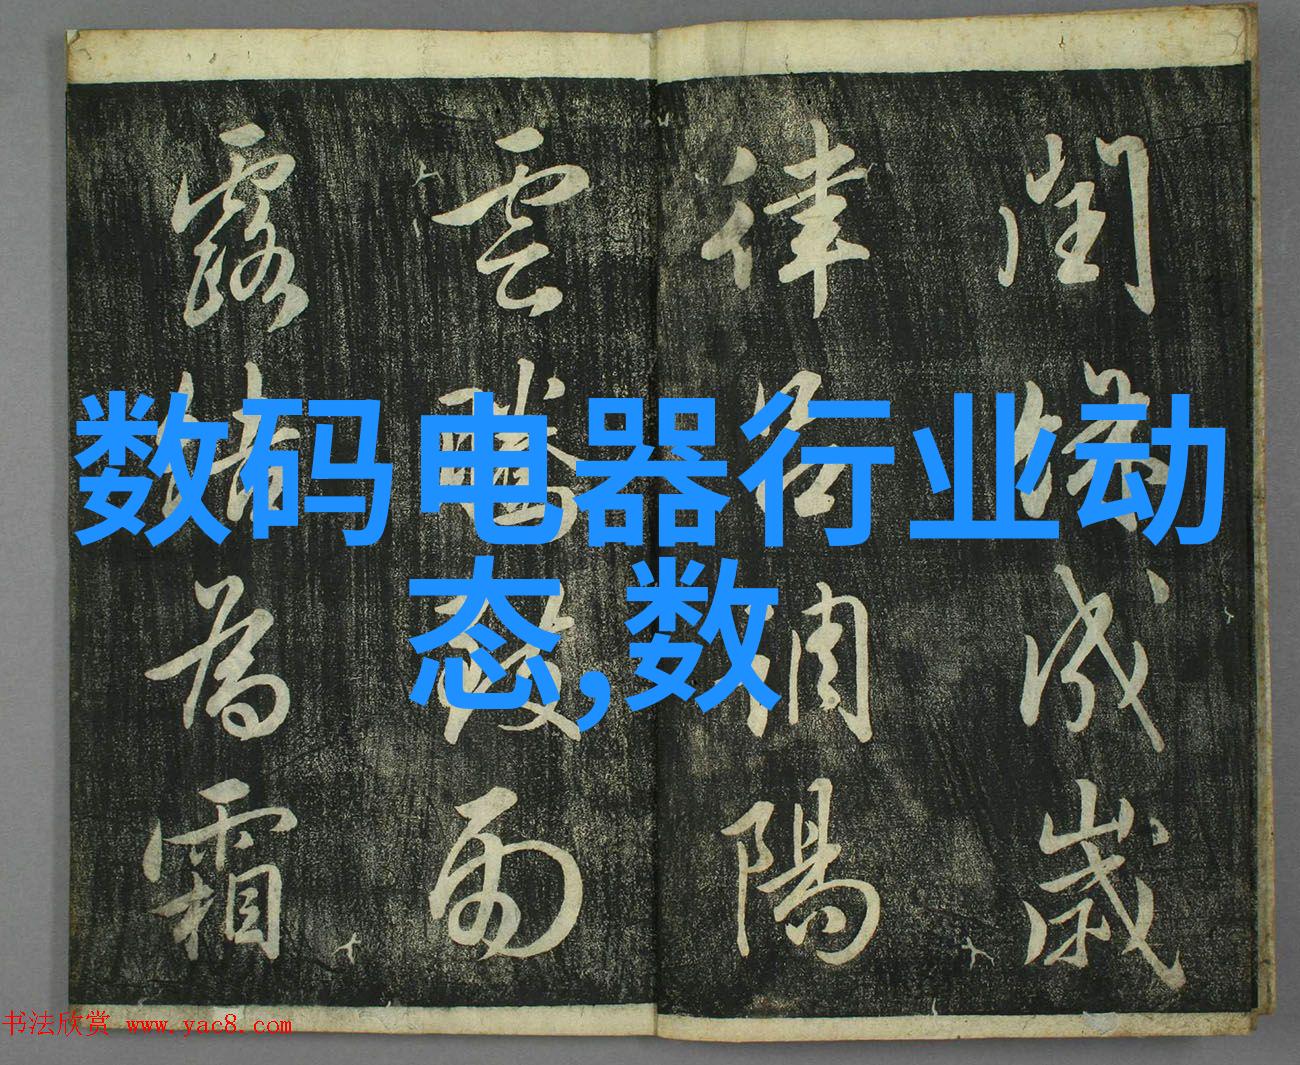 数码电器行业动
态,数
閏餘成歲
律呂調陽
雲騰致雨
露結為霜
书法欣赏 www.yac8.com